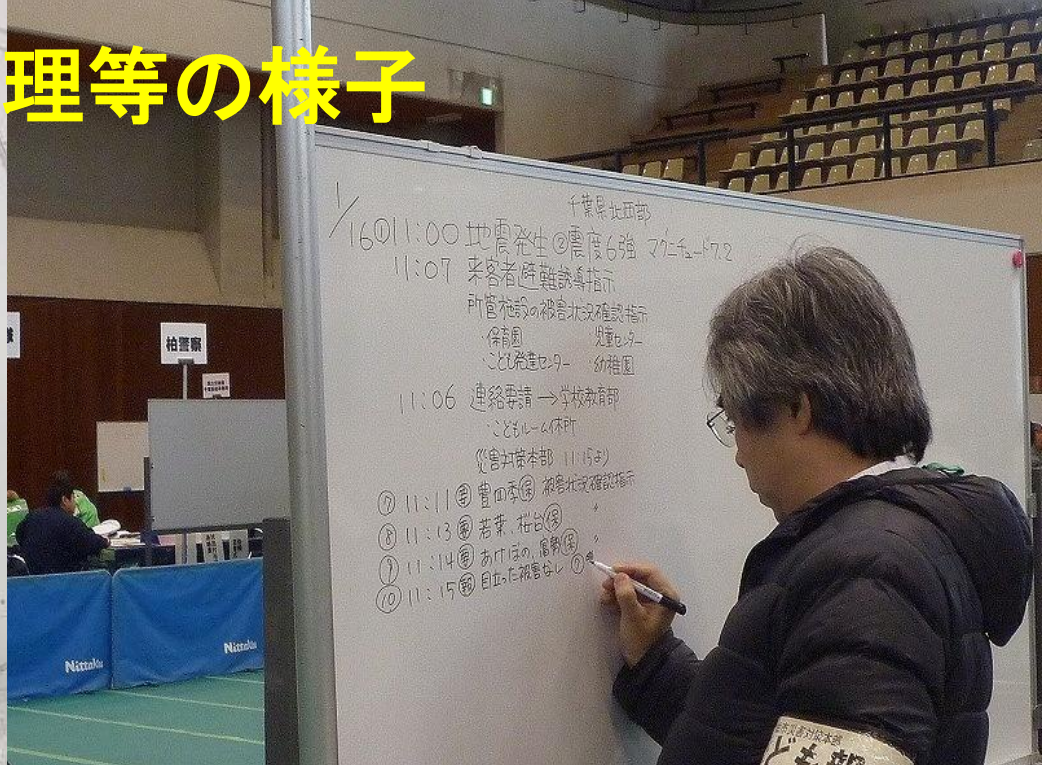 理等の様子
千葉県北西部
1/16①11:00 地震発生 ②震度6強 マグニチュード7.2
11:07 来客者避難誘導指示
所管施設の被害状況確認指示
・保育園 ・児童センター
・こども発達センター ・幼稚園
11:06 連絡要請→学校教育部
・こどもルーム休所
災害対策本部 11:15より
⑦ 11:11 豊四季㋭ 被害状況確認指示
⑧ 11:13 若葉、桜台 〃
⑨ 11:14 あけぼの、富勢 〃
⑩ 11:15 目立った被害なし ⑦
柏警察
Nittaku
Nittaku
市災害対策本部
ども部